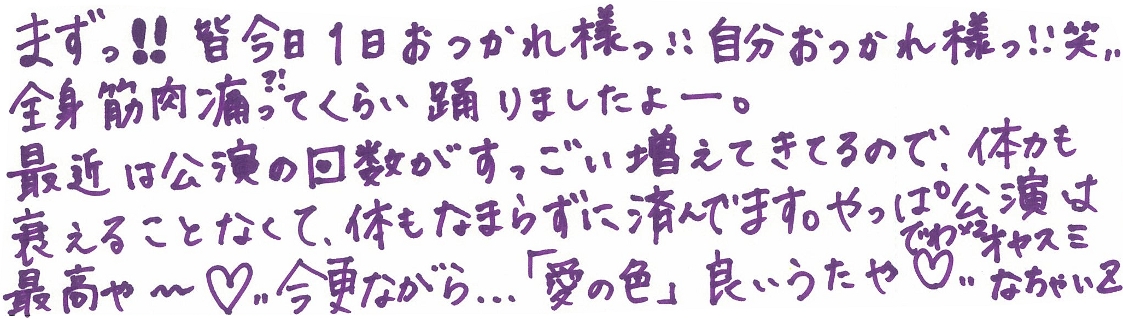 まずっ!! 皆今日1日おつかれ様っ!! 自分おつかれ様っ!! 笑"
全身筋肉痛ってくらい踊りましたよー。
最近は公演の回数がすっごい増えてきてるので、体力も
衰えることなくて、体もなまらずに済んでます。やっぱ公演は
最高や〜♡" 今更ながら...「愛の色」良いうたや♡"
でわ××オヤスミ
なちゃいZ